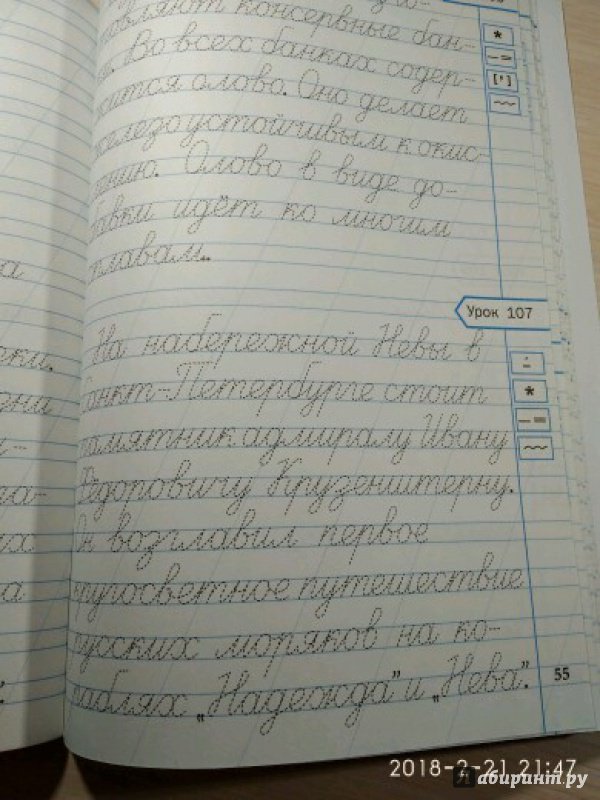 овляют консервные бан-
Во всех банках содер-
жится олово. Оно делает
железо устойчивым к окис-
лению. Олово в виде до-
бавки идёт ко многим
сплавам.
Урок 107
На набережной Невы в
Санкт-Петербурге стоит
памятник адмиралу Ивану
Фёдоровичу Крузенштерну.
Он возглавил первое
кругосветное путешествие
русских моряков на ко-
раблях „Надежда" и „Нева".
55
2018-2-21 21:47
Лабиринт.ру